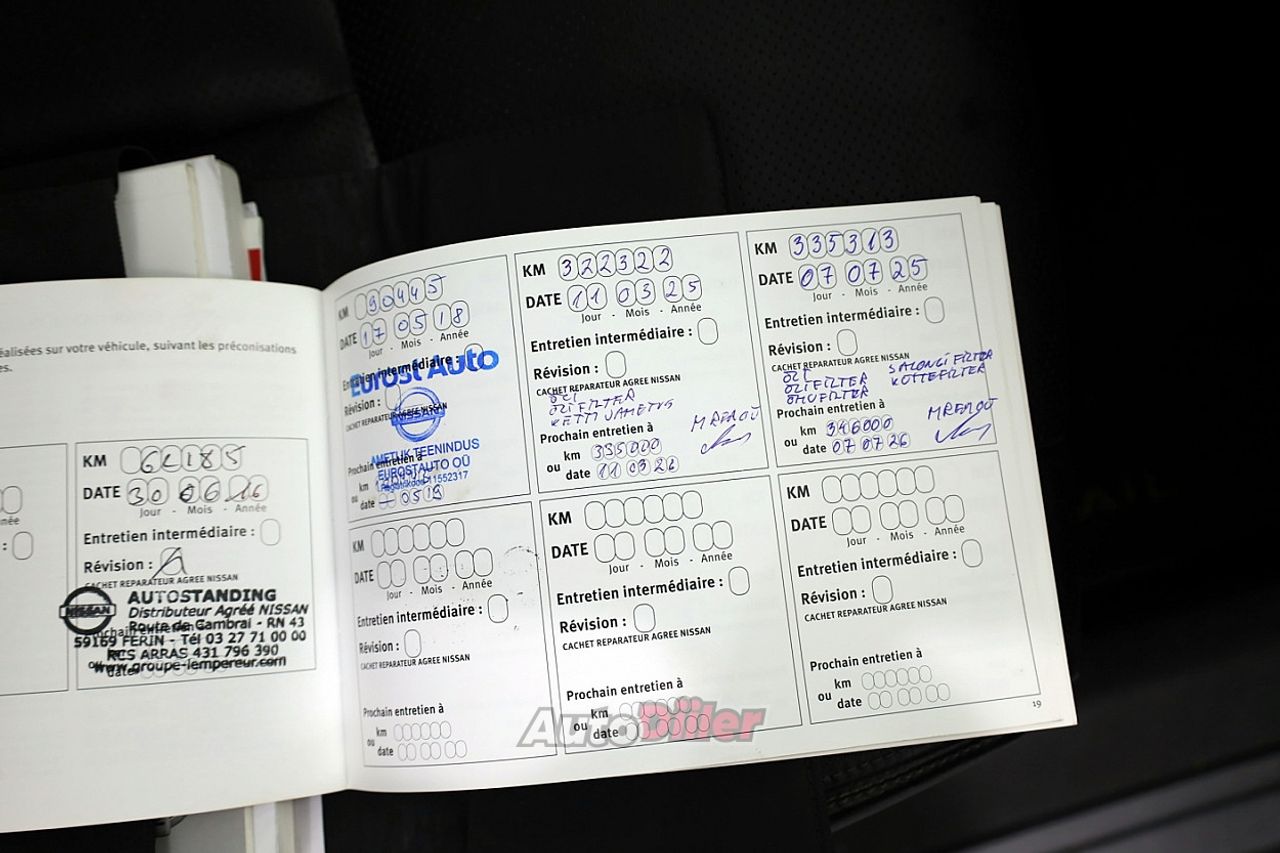 éalisées sur votre véhicule, suivant les préconisations
es.
née
:
KM 62185
DATE 30 06 16
Jour - Mois - Année
Entretien intermédiaire :
Révision :
CACHET REPARATEUR AGREE NISSAN
NISSAN
AUTOSTANDING
Distributeur Agréé NISSAN
Route de Cambrai - RN 43
59169 FERIN - Tél 03 27 71 00 00
RCS ARRAS 431 796 390
www.groupe-lempereur.com
date
KM 90445
DATE 17 05 18
Jour - Mois - Année
Entretien intermédiaire :
Eurost Auto
Révision :
CACHET REPARATEUR AGREE NISSAN
NISSAN
AMETLIK TEENINDUS
EUROSTAUTO OÜ
Registrikood 11552317
Prochain entretien à
km
ou
date 05 19
KM 322322
DATE 11 03 25
Jour - Mois - Année
Entretien intermédiaire :
Révision :
CACHET REPARATEUR AGREE NISSAN
ÕLI
ÕLIFILTER
KETTI VAHETUS
Prochain entretien à
km 335000
ou
date 11 03 26
KM 335313
DATE 07 07 25
Jour - Mois - Année
Entretien intermédiaire :
Révision :
CACHET REPARATEUR AGREE NISSAN
ÕLI SALONGIFILTER
ÕLIFILTER KÜTTEFILTER
ÕHUFILTER
Prochain entretien à
km 346000
ou
date 07 07 26
KM
DATE
Jour - Mois - Année
Entretien intermédiaire :
Révision :
CACHET REPARATEUR AGREE NISSAN
Prochain entretien à
km
ou
date
KM
DATE
Jour - Mois - Année
Entretien intermédiaire :
Révision :
CACHET REPARATEUR AGREE NISSAN
Prochain entretien à
km
ou
date
KM
DATE
Jour - Mois - Année
Entretien intermédiaire :
Révision :
CACHET REPARATEUR AGREE NISSAN
Prochain entretien à
km
ou
date
19
AutoDiiler